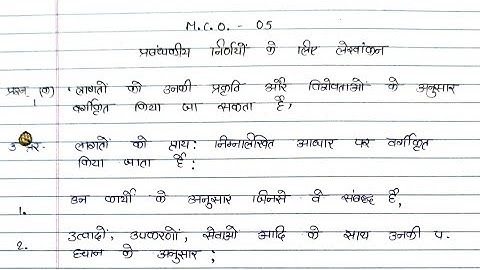 M.C.O. - 05
प्रबंधकीय निर्णयों के लिए लेखांकन
प्रश्न (क) 'लागतों को उनकी प्रकृति और विशेषताओं के अनुसार
1 वर्गीकृत किया जा सकता है,
उत्तर- लागतों को प्राय: निम्नलिखित आधार पर वर्गीकृत
किया जाता है:
1. उन कार्यों के अनुसार जिनसे वे संबद्ध है,
2. उत्पादों, उपकरणों, सेवाओं आदि के साथ उनकी प.
ध्यान के अनुसार;